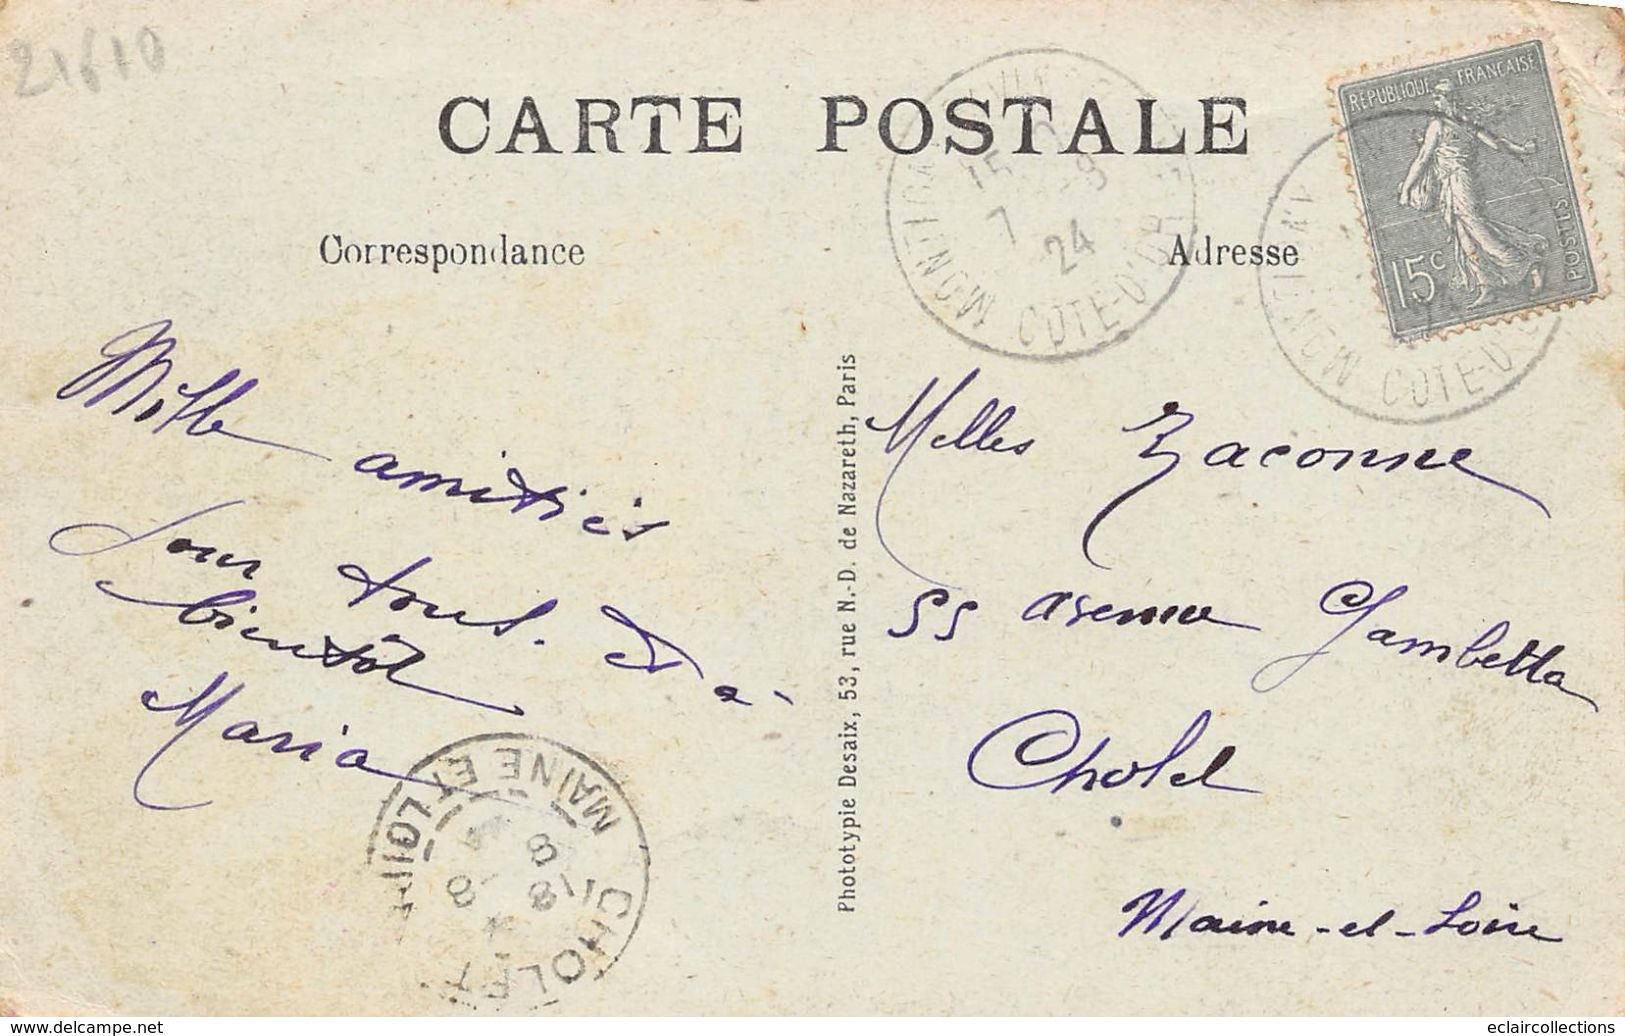 21610
CARTE POSTALE
RÉPUBLIQUE FRANÇAISE
POSTES
15c
15
7 - 8
24
COTE-D'OR
COTE-D'O
Correspondance
Adresse
Mille
amitiés
pour tous. Et à
bientôt
Maria
Melles Zaconne
55 avenue Gambetta
Cholet
Maine-et-Loire
Phototypie Desaix, 53, rue N.-D. de Nazareth, Paris
CHOLET
MAINE ET LOIRE
8 - 8
www.delcampe.net
eclaircollections